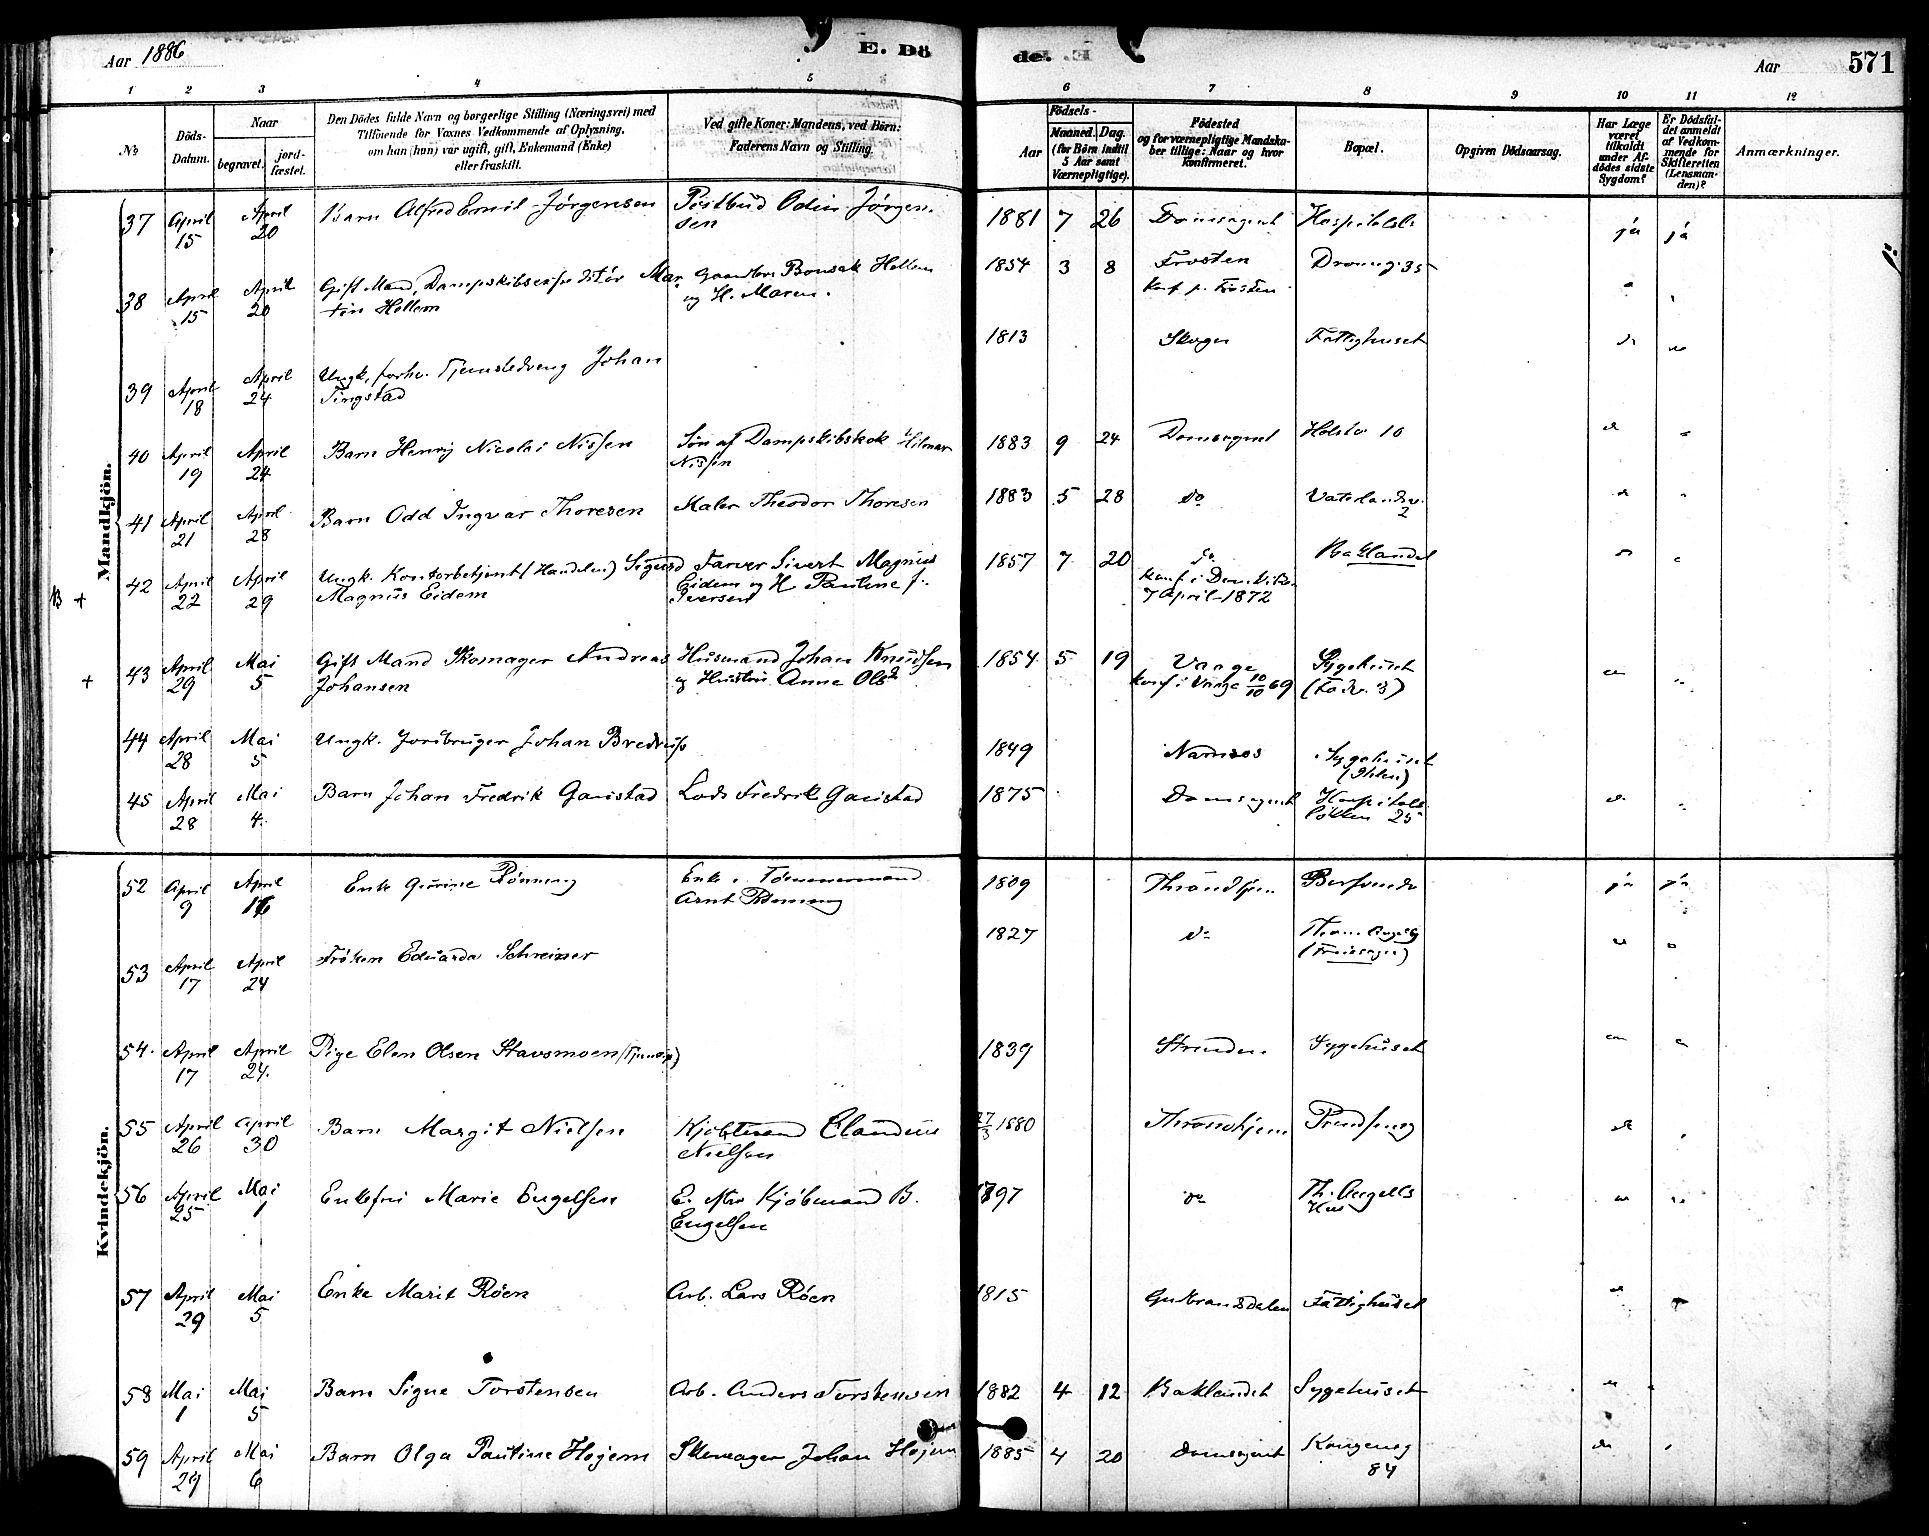 Aar 1886
E. Dö
de.
Aar
571
1 2 3 4 5 6 7 8 9 10 11 12
No
Döds-Datum.
Naar
begravet.
jord-fæstet.
Den Dödes fulde Navn og borgerlige Stilling (Næringsvei) med
Tilföiende for Voxnes Vedkommende af Oplysning,
om han (hun) var ugift, gift, Enkemand (Enke)
eller fraskilt.
Ved gifte Koner: Mandens, ved Börn:
Faderens Navn og Stilling.
Födsels-
Aar
Maaned. Dag.
(for Börn indtil
5 Aar samt
Værnepligtige).
Födested
og for værnepligtige Mandska-
ber tillige: Naar og hvor
konfirmeret.
Bopæl.
Opgiven Dödsaarsag.
Har Læge
været
tilkaldt
under Af-
dödes sidste
Sygdom?
Er Dödsfal-
det anmeldt
af Vedkom-
mende for
Skifteretten
(Lensman-
den)?
Anmærkninger.
Mandkjön.
37 April 15 April 20 Barn Alfred Emil Jörgensen Postbud Odin Jörgen-
sen 1881 7 26 Domsognet Hospitalsl. ja ja
38 April 15 April 20 Gift Mand, Dampskibsexpeditör Mar-
tin Hollem Gaardbr. Bonsak Hollem
og H. Maren. 1854 3 8 Frosten
Konf. p. Frosten Dronng. 35
39 April 18 April 24 Ungk. forhv. Johan
Tingstad 1813 Skogn Fattighuset
40 April 19 April 24 Barn Henrij Nicolai Nissen Sön af Dampskibskok Hilmar
Nissen 1883 9 24 Domsognet 10
41 April 21 April 28 Barn Odd Ingvar Thoresen Maler Theodor Thoresen 1883 5 28 do 2
B +
42 April 22 April 29 Ungk. Kontorbetjent (Handelen) Sigurd
Magnus Eidem Farver Sivert Magnus
Eidem og H. Pauline f.
Iversen 1857 7 20 do
Konf. i Dom
7 April 1872 Baklandet
+
43 April 29 Mai 5 Gift Mand Skomager Andreas
Johansen Husmand Johan Knudsen
og Hustru Anne Olsd 1854 5 19 Vaage
konf. i Vaage 10/10 69 Sygehuset
44 April 28 Mai 5 Ungk. Jordbruger Johan Bredrup 1849 Namsos Sygehuset
(Ihlen)
45 April 28 Mai 4 Barn Johan Fredrik Ganstad Lods Fredrik Ganstad 1875 Domsognet Hospitals
lökken 25
Kvindekjön.
52 April 9 April 16 Enke Gurine Rönning Enke e. Tömmermand
Arnt Rönning 1809 Throndhjem ja ja
53 April 17 April 24 Fröken Eduarda Schreiner 1827 do Thom. Angells
54 April 17 April 24 Pige Elen Olsen Stavsmoen 1839 Strinden Sygehuset
55 April 26 April 30 Barn Margit Nielsen Kjöbmand Claudius
Nielsen 27/3 1880 Throndhjem Prindsensg
56 April 25 Mai 1 Enkefru Marie Engelsen E. efter Kjöbmand B.
Engelsen 1797 do Th. Angells
Hus
57 April 29 Mai 5 Enke Marit Röen Arb. Lars Röen 1815 Gudbrandsdalen Fattighuset
58 Mai 1 Mai 5 Barn Signe Torstensen Arb. Anders Torstensen 1882 4 12 Baklandet Sygehuset
59 April 29 Mai 6 Barn Olga Pauline Hojem Skomager Johan Hojem 1885 4 20 Domsognet Kongensg
84